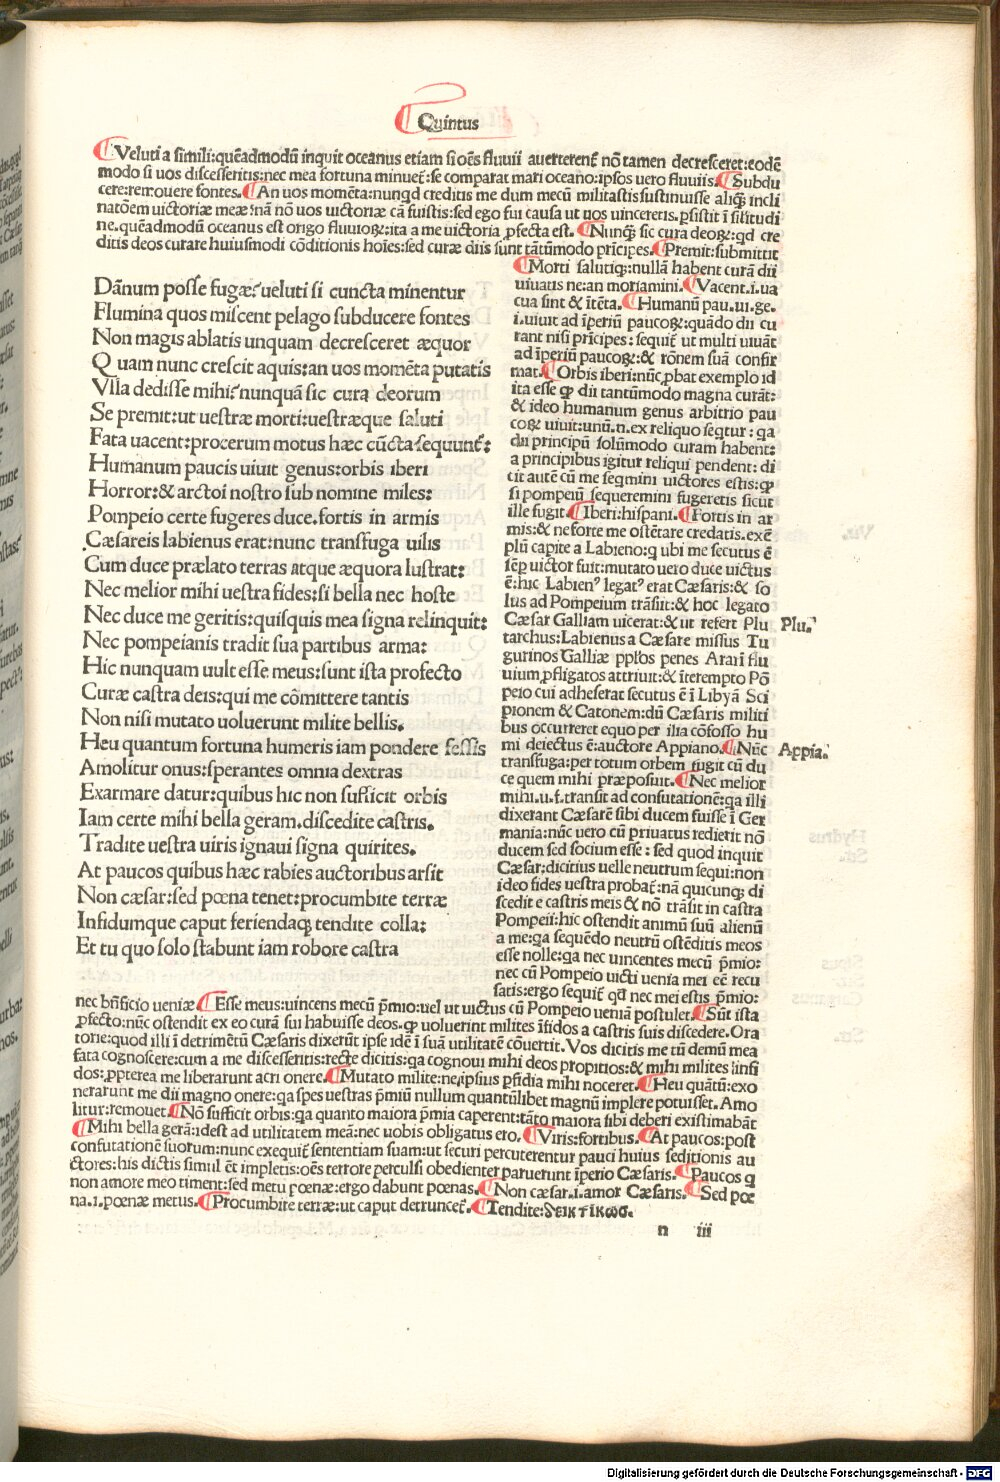 Quintus
¶Veluti a simili:quēadmodū inquit oceanus etiam si oēs fluuii auerterent̄ nō tamen decresceret:eodē
modo si uos discesseritis:nec mea fortuna minuet̄:se comparat mari oceano:ipsos uero fluuiis.¶Subdu
cere:remouere fontes.¶An uos momēta:nunqd creditis me dum mecū militastis sustinuisse aliqꝫ incli
natōem uictoriæ meæ?nā nō uos uictoriæ cā fuistis:sed ego fui causa ut uos uinceretis.ꝑsistit ī silitudi
ne.quēadmodū oceanus est origo fluuioꝝ:ita a me uictoria ꝓfecta est.¶Nunqꝫ sic cura deoꝝ:qd cre
ditis deos curare huiusmodi cōditionis hoīes:sed curæ diis sunt tātūmodo prīcipes.¶Premit:submittit
Dānum posse fugæ?ueluti si cuncta minentur
Flumina quos miscent pelago subducere fontes
Non magis ablatis unquam decresceret æquor
Quam nunc crescit aquis:an uos momēta putatis
Vlla dedisse mihi?nunquā sic cura deorum
Se premit:ut uestræ morti:uestræque saluti
Fata uacent:procerum motus hæc cūcta sequunt̄:
Humanum paucis uiuit genus:orbis iberi
Horror:& arctoi nostro sub nomine miles:
Pompeio certe fugeres duce.fortis in armis
Cæsareis labienus erat:nunc transfuga uilis
Cum duce prælato terras atque æquora lustrat:
Nec melior mihi uestra fides:si bella nec hoste
Nec duce me geritis:quisquis mea signa relinquit:
Nec pompeianis tradit sua partibus arma:
Hic nunquam uult esse meus:sunt ista profecto
Curæ castra deis:qui me cōmittere tantis
Non nisi mutato uoluerunt milite bellis.
Heu quantum fortuna humeris iam pondere fessis
Amolitur onus:sperantes omnia dextras
Exarmare datur:quibus hic non sufficit orbis
Iam certe mihi bella geram.discedite castris.
Tradite uestra uiris ignaui signa quirites.
At paucos quibus hæc rabies auctoribus arsit
Non cæsar:sed pœna tenet:procumbite terræ
Infidumque caput feriendaqꝫ tendite colla:
Et tu quo solo stabunt iam robore castra
¶Morti salutiqꝫ:nullā habent curā dii
uiuatis ne:an moriamini.¶Vacent.i.ua
cua sint & itēta.¶Humanū pau.ui.ge.
i.uiuit ad īperiū paucoꝝ:quādo dii cu
rant nisi prīcipes:sequit̄ ut multi uiuāt
ad īperiū paucoꝝ:& rōnem suā confir
mat.¶Orbis iberi:nūc ꝓbat exemplo id
ita esse ꝙ dii tantūmodo magna curāt:
& ideo humanum genus arbitrio pau
coꝝ uiuit:unū.n.ex reliquo seqtur:qa
dii principū solūmodo curam habent:
a principibus igitur reliqui pendent:di
cit autē cū me seqmini uictores estis:ꝙ
si pompeiū sequeremini fugeretis sicut
ille fugit.¶Iberi:hispani.¶Fortis in ar
mis:& ne forte me ostētare credatis.exē
plū capite a Labieno:q ubi me secutus ē
sēꝑ uictor fuit:mutato uero duce uictus
ē:hic Labienꝰ legatꝰ erat Cæsaris:& so
lus ad Pompeium trāsiit:& hoc legato
Cæsar Galliam uicerat:& ut refert Plu
tarchus:Labienus a Cæsare missus Tu
gurinos Galliæ pplōs penes Ararī flu
uium,ꝓfligatos attriuit:& īterempto Pō
peio cui adheserat secutus ē ī Libyā Sci
pionem & Catonem:dū Cæsaris militi
bus occurreret equo per ilia cōfosso hu
mi deiectus ē:auctore Appiano.¶Nūc
transfuga:per totum orbem fugit cū du
ce quem mihi præposuit.¶Nec melior
mihi.u.f.transit ad confutationē:qa illi
dixerant Cæsarē sibi ducem fuisse ī Ger
mania:nūc uero cū priuatus redierit nō
ducem sed socium esse:sed quod inquit
Cæsar:dicitius uelle neutrum sequi:non
ideo fides uestra probat̄:nā quicunqꝫ di
scedit e castris meis & nō trāsit in castra
Pompeii:hic ostendit animū suū alienū
a me:qa sequēdo neutrū ostēditis meos
esse nolle:qa nec uincentes mecū ꝓmio:
nec cū Pompeio uicti uenia mei eē recu
satis:ergo sequit̄ qd nec mei estis ꝓmio:
Plu.
Appia.
nec bn̄ficio ueniæ ¶Esse meus:uincens mecū ꝓmio:uel ut uictus cū Pompeio ueniā postulet.¶Sūt ista
ꝓfecto:nūc ostendit ex eo curā sui habuisse deos.ꝙ uoluerint milites īfidos a castris suis discedere.Ora
torie:quod illi ī detrimētū Cæsaris dixerūt ipse idē ī suā utilitatē cōuertit.Vos dicitis me tū demū mea
fata cognoscere:cum a me discesseritis:recte dicitis:qa cognoui mihi deos propitios:& mihi milites īnfi
dos:ꝓpterea me liberarunt acri onere.¶Mutato milite:ne ipsius ꝑfidia mihi noceret.¶Heu quātū:exo
nerarunt me dii magno onere:qa spes uestras ꝓmiū nullum quantūlibet magnū implere potuisset.Amo
litur:remouet.¶Nō sufficit orbis:qa quanto maiora ꝓmia caperent:tāto maiora sibi deberi existimabāt
¶Mihi bella gerā:idest ad utilitatem meā:nec uobis obligatus ero.¶Viris:fortibus.¶At paucos:post
confutationē suorum:nunc exequit̄ sententiam suam:ut securi percuterentur pauci huius seditionis au
ctores:his dictis simul ēt impletis:oēs terrore perculsi obedienter paruerunt īperio Cæsaris.¶Paucos q
non amore meo timent:sed metu pœnæ:ergo dabunt pœnas.¶Non cæsar.i.amor Cæsaris.¶Sed pœ
na.i.pœnæ metus.¶Procumbite terræ:ut caput detruncet̄.¶Tendite:δεικτικωσ.
n iii
Digitalisierung gefördert durch die Deutsche Forschungsgemeinschaft - DFG